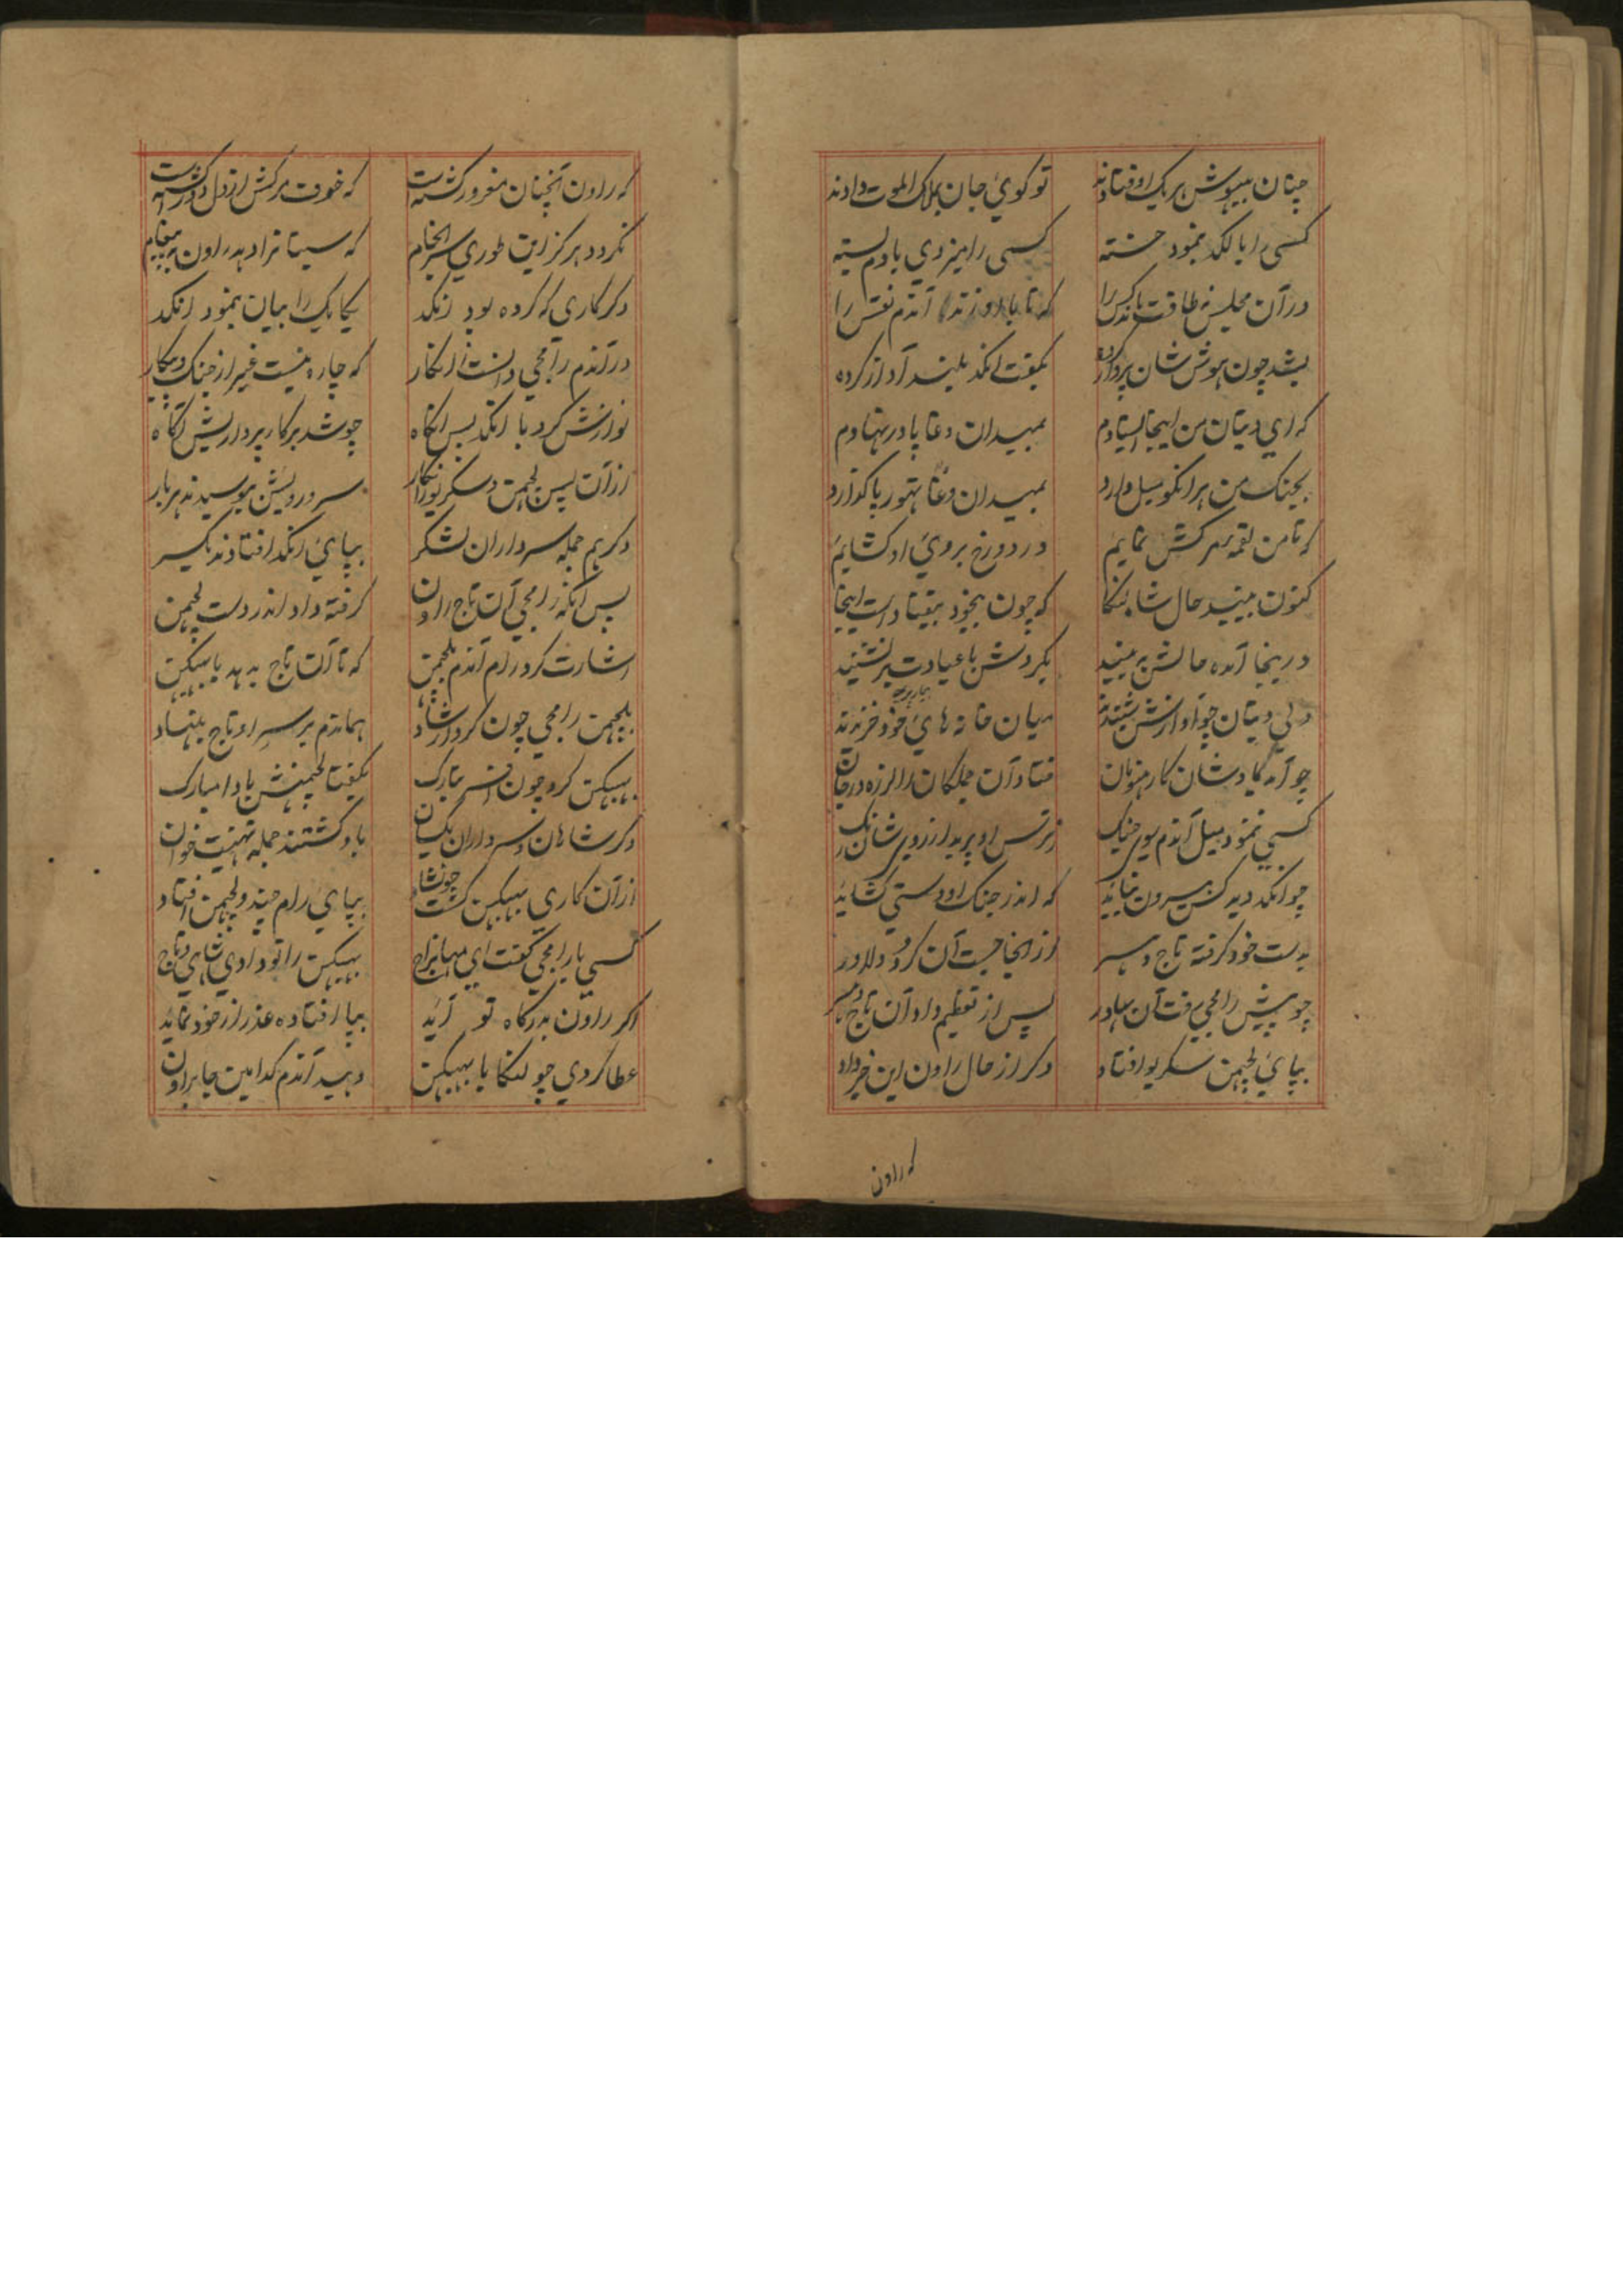 چنان بیهوش بر یک اوفتادند تو گوئی جان بملک الموت دادند
کسی را با لگد بنمود خسته کسی را میزدی با دم بسته
در آن مجلس نه طاقت ماند کس را که تا با او زند آندم نفس را
بشد چون هوش شان پرواز کرده بگفت انکد بلند آواز کرده
که ای دیتان من اینجا ایستادم بمیدان دغا پا در نهادم
بجنک من هر انکو میل دارد بمیدان دغا تهور پا گذارد
که تا من لقمه مرکش نمایم در دوزخ بروی او کشایم
کنون بینید حال شاه لنکا که چون بیخود بیفتاد است اینجا
در اینجا آمده حالش به بینید بگردش با عیادت بر نشینید
ولی دیتان چو آوازش شنیدند میان خانه های خود خزیدند
چو آمد یادشان کار هنومان فتاد آن جملکان را لرزه در جان
کسی ننمود میل آندم سوی جنک ز ترس او پرید از روی شان رنک
چو انکد دید کس بیرون نیاید که اندر جنک او دستی کشاید
بدست خود کرفته تاج و سر از انجا جست آن کرد دلاور
چو پیش رامجی رفت آن بهادر پس از تعظیم داد آن تاج و سر
بپای لچهمن سکریو افتاد دکر از حال راون این خبر داد
که راون
که راون آنچنان مغرور کشته است که خوف مرکش از دل در کذشته است
نکردد هرکز این طوری سرانجام که سیتا را دهد راون به پیغام
دکر کاری که کرده بود انکد یکایک را بیان بنمود انکد
در آندم رامجی دانست انکار که چاره نیست غیر از جنک و پیکار
نوازش کرد با انکد پس انکاه چو شد بر کار پردازیش آکاه
از آن پس لچهمن و سکریو انکار سر و رویش ببوسیدند هر بار
دکر هم جمله سرداران لشکر بپای انکد افتادند یکسر
پس آنکه رامجی آن تاج راون کرفته داد اندر دست لچهمن
اشارت کرد رام آندم بلچهمن که تا آن تاج بدهد با بهبیکن
بلچهمن رامجی چون کرد ارشاد هماندم بر سر او تاج بنهاد
بهبیکن کرد چون افسر بتارک بگفتا لچهمنش بادا مبارک
دکر شاهان و سرداران یکسان باو کشتند جمله تهنیت خوان
از آن کاری بهبیکن کشت چون شاد بپای رام چند و لچهمن افتاد
کسی با رامجی گفت ای مهاراج بهبیکن را تو دادی شاهی و تاج
اکر راون بدرگاه تو آید بپا افتاده عذر از خود نماید
عطا کردی چو لنکا با بهبیکن دهید آندم کدامین جا براون